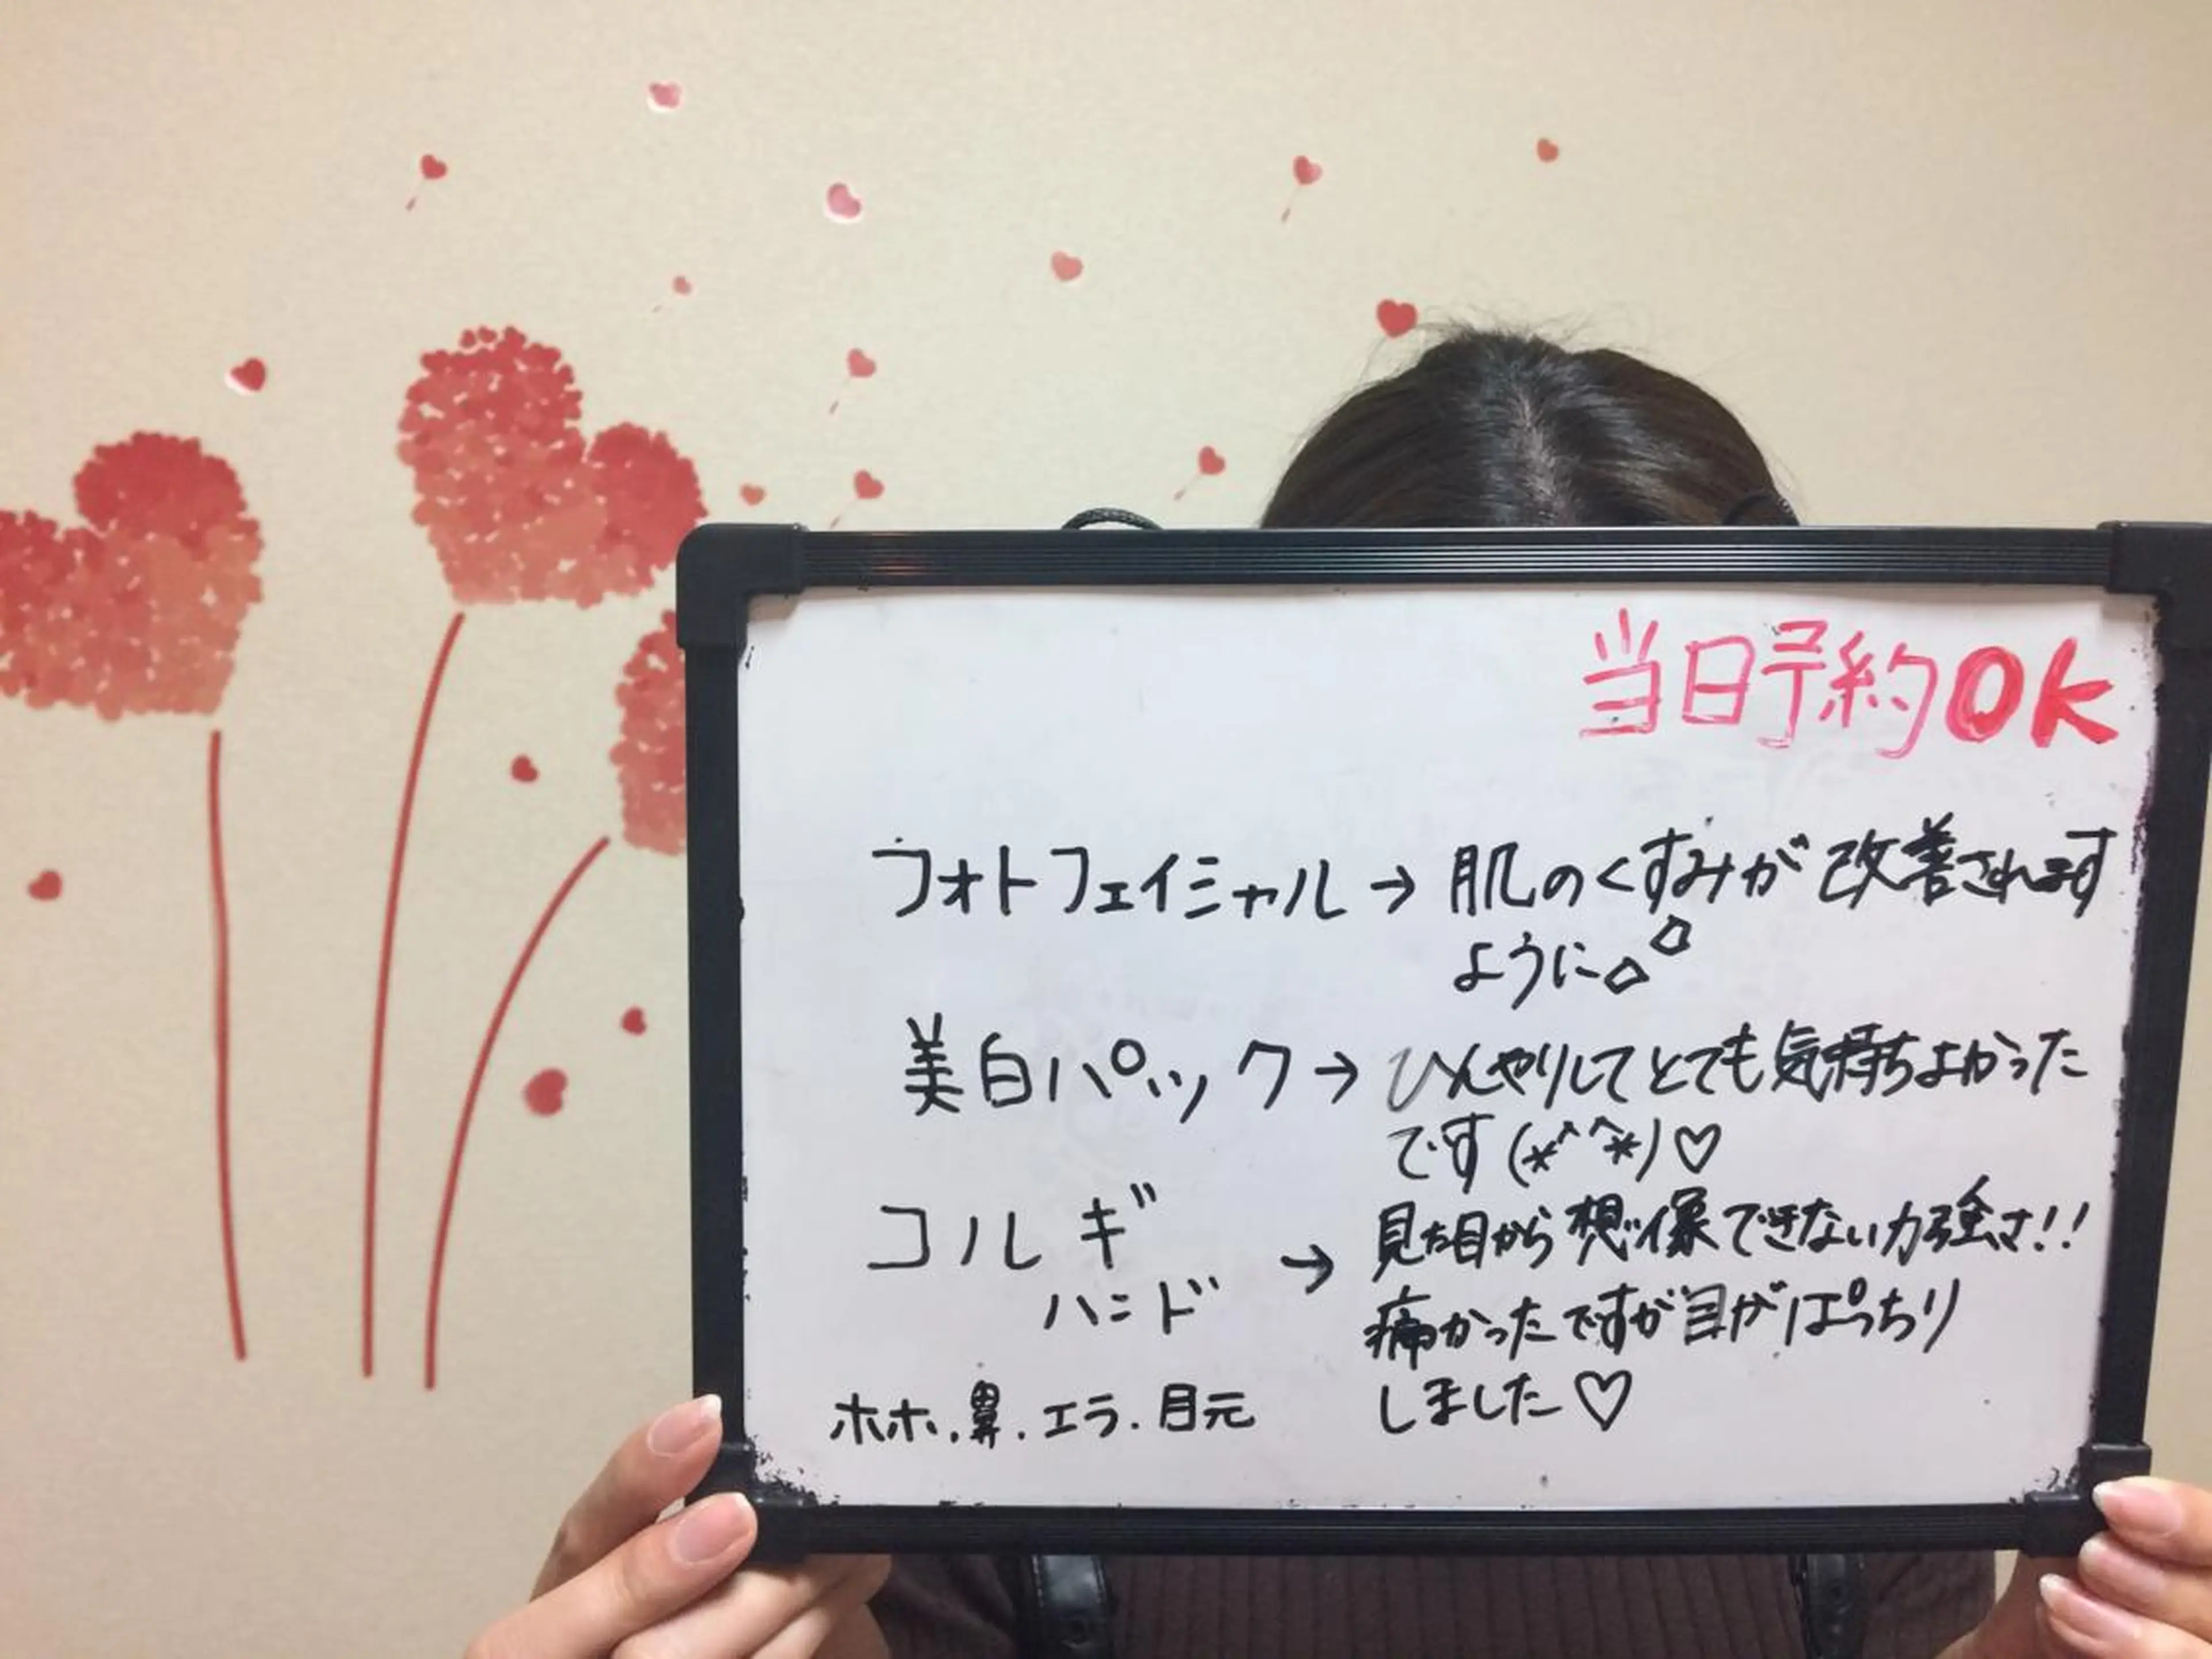 当日予約OK
フォトフェイシャル→肌のくすみが改善されます
ように。
美白パック→ひんやりしてとても気持ちよかった
です(*^^*)♡
コルギ
ハンド
→見た目から想像できない力強さ!!
痛かったですが目がぱっちり
しました♡
ホホ.鼻.エラ.目元